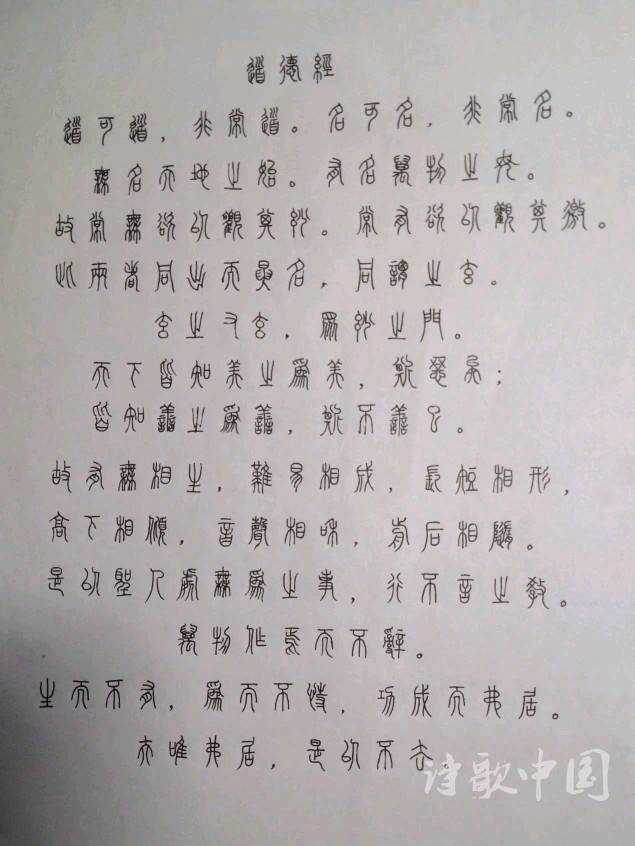 道德經
道可道，非常道。名可名，非常名。
無名天地之始。有名萬物之母。
故常無欲以觀其妙。常有欲以觀其徼。
此兩者同出而異名，同謂之玄。
玄之又玄，為妙之門。
天下皆知美之為美，斯惡矣；
皆知善之為善，斯不善已。
故有無相生，難易相成，長短相形，
高下相傾，音聲相和，前后相隨。
是以聖人處無為之事，行不言之教。
萬物作焉而不辭。
生而不有，為而不恃，功成而弗居。
夫唯弗居，是以不去。
诗歌中国